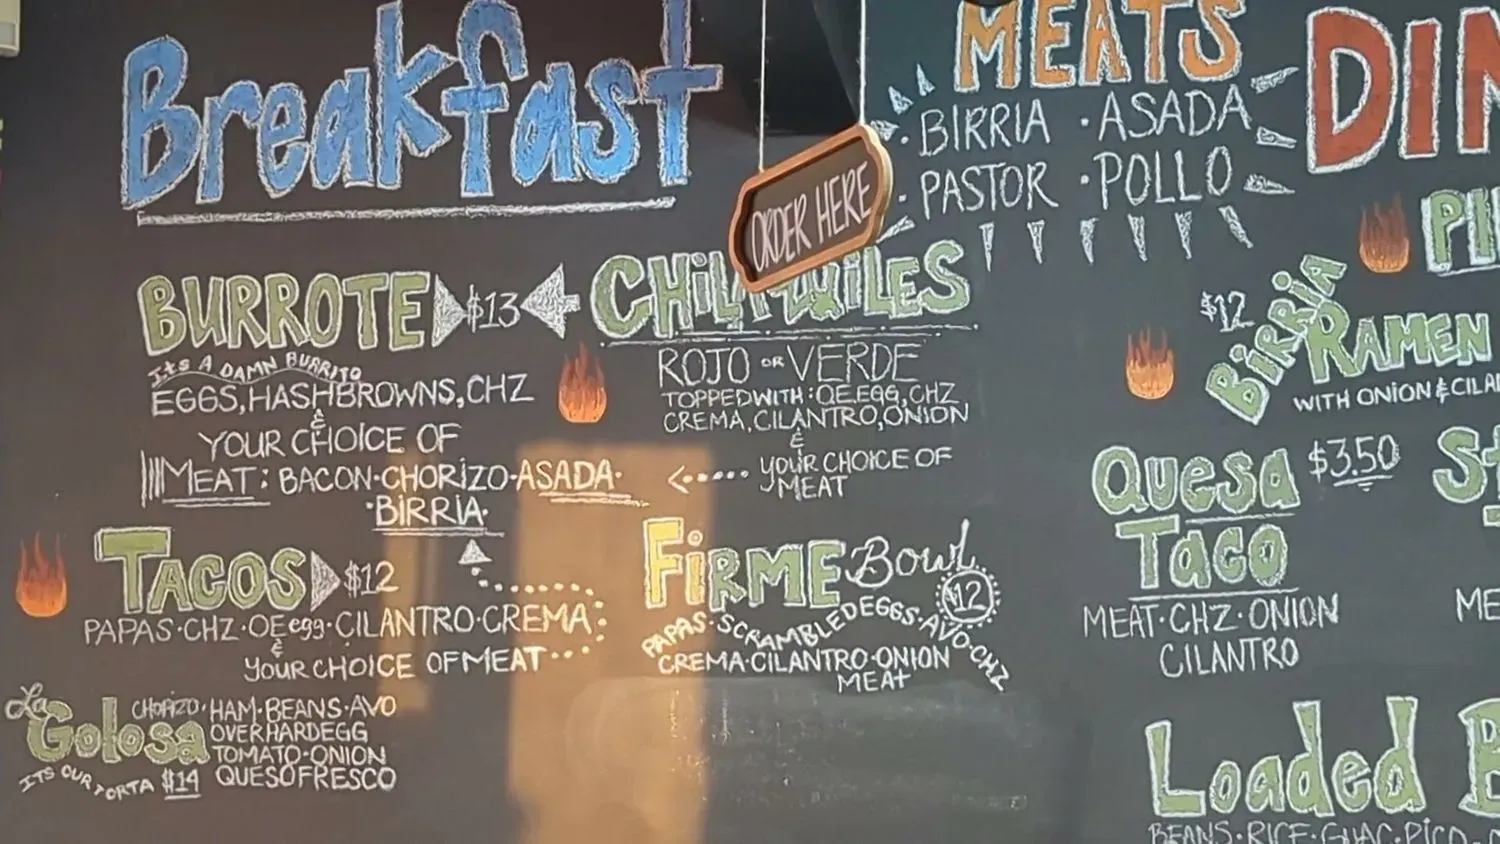 Breakfast
BURROTE $13 CHILAQUILES
ITS A DAMN BURRITO
EGGS, HASHBROWNS, CHZ
&
YOUR CHOICE OF
MEAT: BACON·CHORIZO·ASADA·
·BIRRIA·
ROJO OR VERDE
TOPPED WITH: OE.EGG, CHZ
CREMA, CILANTRO, ONION
&
YOUR CHOICE OF
MEAT
TACOS $12
PAPAS·CHZ·OE egg·CILANTRO·CREMA
&
YOUR CHOICE OF MEAT
FIRME Bowl
$12
PAPAS·SCRAMBLED EGGS·AVO·CHZ
CREMA·CILANTRO·ONION
MEAT
La Golosa
ITS OUR TORTA $14
CHORIZO·HAM·BEANS·AVO
OVERHARDEGG
TOMATO·ONION
QUESOFRESCO
ORDER HERE
MEATS
·BIRRIA ·ASADA
·PASTOR ·POLLO
DIN
PI
$12 BIRRIA RAMEN
WITH ONION & CILA
QUESA $3.50
TACO
MEAT·CHZ·ONION
CILANTRO
St
ME
Loaded B
BEANS·RICE·GUAC·PICO